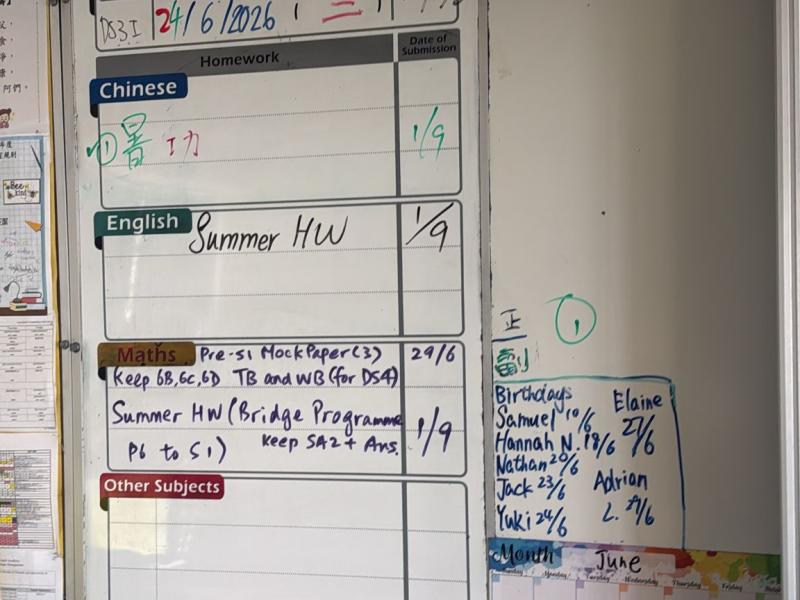 DS3I 24/6/2026
Homework
Date of Submission
Chinese
① 暑 功 1/9
English
Summer HW 1/9
Maths Pre-S1 Mock Paper (3) 29/6
Keep 6B, 6C, 6D TB and WB (for DS4)
Summer HW (Bridge Programme 1/9
P6 to S1) Keep SA2 + Ans.
Other Subjects
正 1
副
Birthdays
Samuel 10/6
Hannah N. 18/6
Nathan 20/6
Jack 23/6
Yuki 24/6
Elaine 27/6
Adrian
L. 29/6
Month June
Bee kind